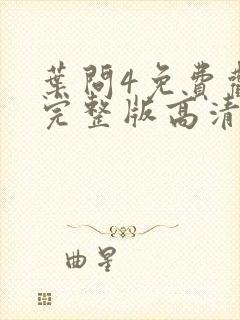 葉問4免費觀
完整版高清
曲星